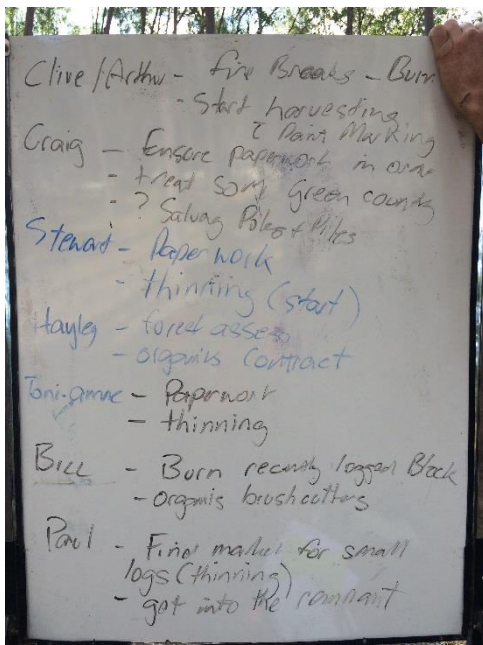 Clive/Arthur - Fire Breaks - Burn
- Start harvesting
? Paint Marking
Craig - Ensure paperwork in order
- treat some Green country
- ? Salvag Poles + Piles
Stewart - Paperwork
- thinning (start)
Hayley - forest assess
- organis contract
Toni-anne - Paperwork
- thinning
Bill - Burn recently logged Block
- organis brushcutters
Paul - Find market for small
logs (thinning)
- get into the remnant